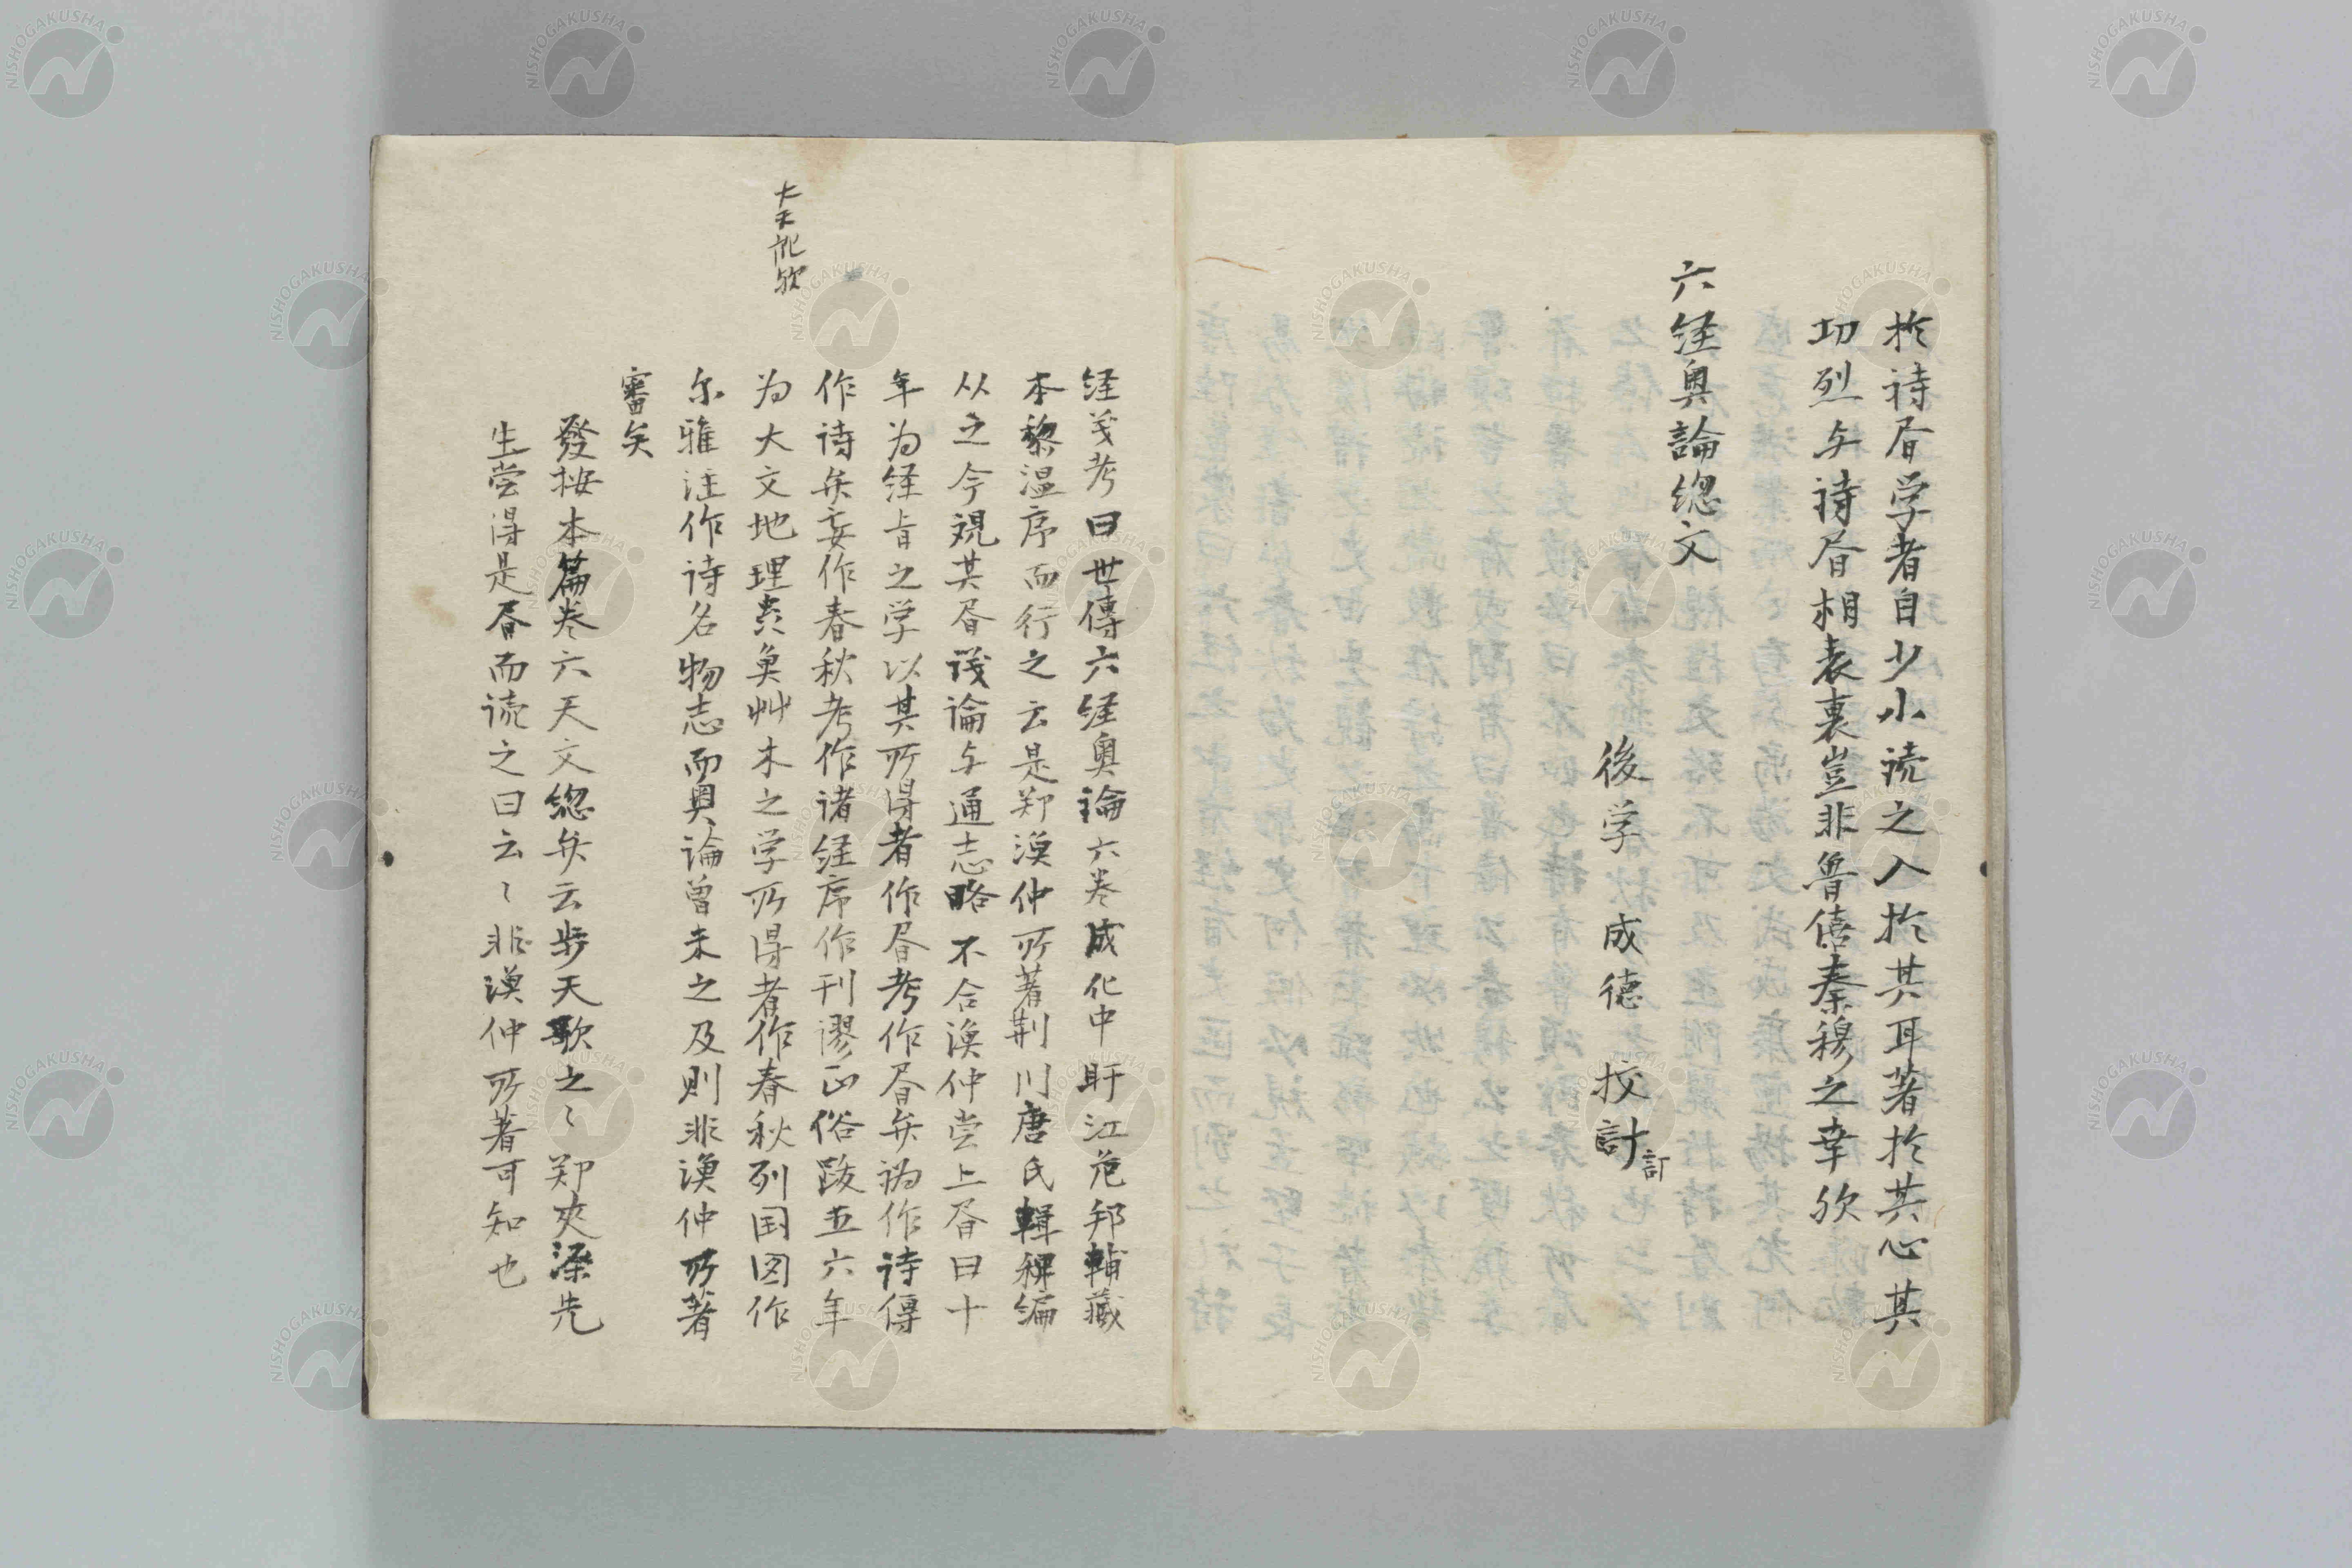 於詩書学者自少小読之入於其耳著於其心其
功烈与詩書相表裏豈非魯僖秦穆之幸欤
六経奥論緫文
後学 成德 挍計
訂
経義考曰世傳六経奥論六巻成化中盱江危邦輔藏
本黎温序而行之云是郑漁仲所著荆川唐氏輯稗编
从之今視其書議論与通志略不合漁仲尝上書曰十
年为経旨之学以其所得者作書考作書弁譌作詩傳
作詩弁妄作春秋考作诸経序作刊謬正俗跋五六年
为大文地理虫魚艸木之学所得者作春秋列国図作
尔雅注作詩名物志而奥論曽未之及則非漁仲所著
審矣
發按本篇巻六天文緫弁云步天歌之〻郑夾漈先
生尝得是書而読之曰云〻非漁仲所著可知也
大天訛欤
NISHOGAKUSHA